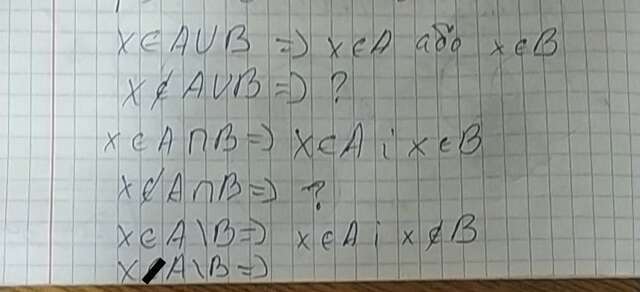 x∈A∪B => x∈A або x∈B
x∉A∪B => ?
x∈A∩B => x∈A і x∈B
x∉A∩B => ?
x∈A\B => x∈A і x∉B
x A\B =>